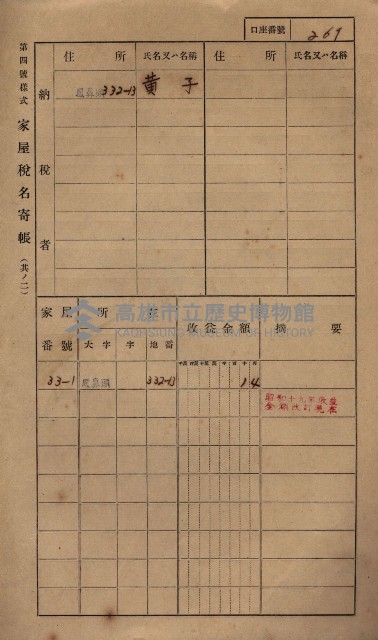 口座番號 269
第四號樣式 家屋稅名寄帳 (其ノ二)
納稅者
住所 氏名又ハ名稱 住所 氏名又ハ名稱
332-13 黄子
高雄市立歷史博物館
KAOHSIUNG MUSEUM OF HISTORY
家屋所在 收益金額 摘要
番號 大字 字 地番
33-1 332-13 14
昭和十九年收益
金額改訂現在